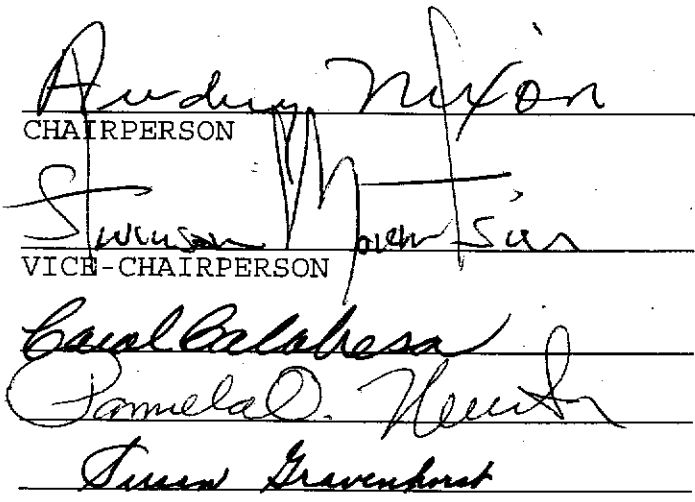 Audrey Nixon
CHAIRPERSON
VICE-CHAIRPERSON
Carol Calabresa
Pamela O. Newton
Susan Gravenhorst